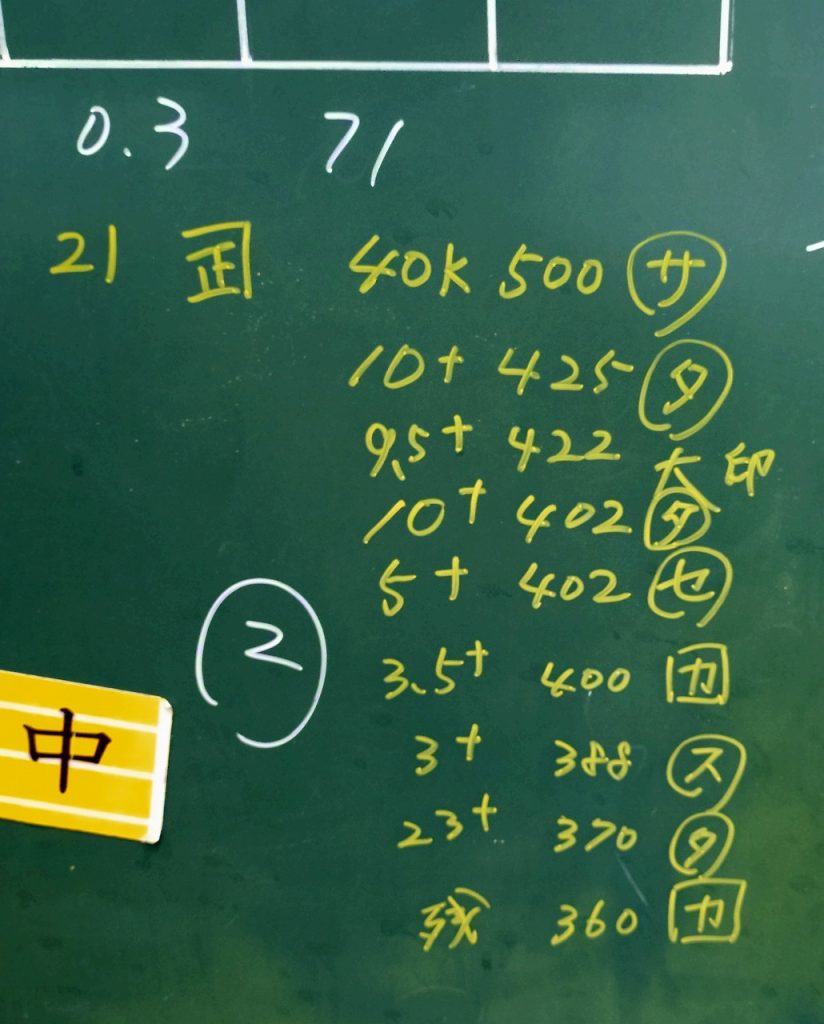 0.3 71
21 正 40K 500 サ
10+ 425 タ
9.5+ 422 大印
10+ 402 タ
5+ 402 セ
② 3.5+ 400 カ
中 3+ 388 ス
23+ 370 タ
残 360 カ